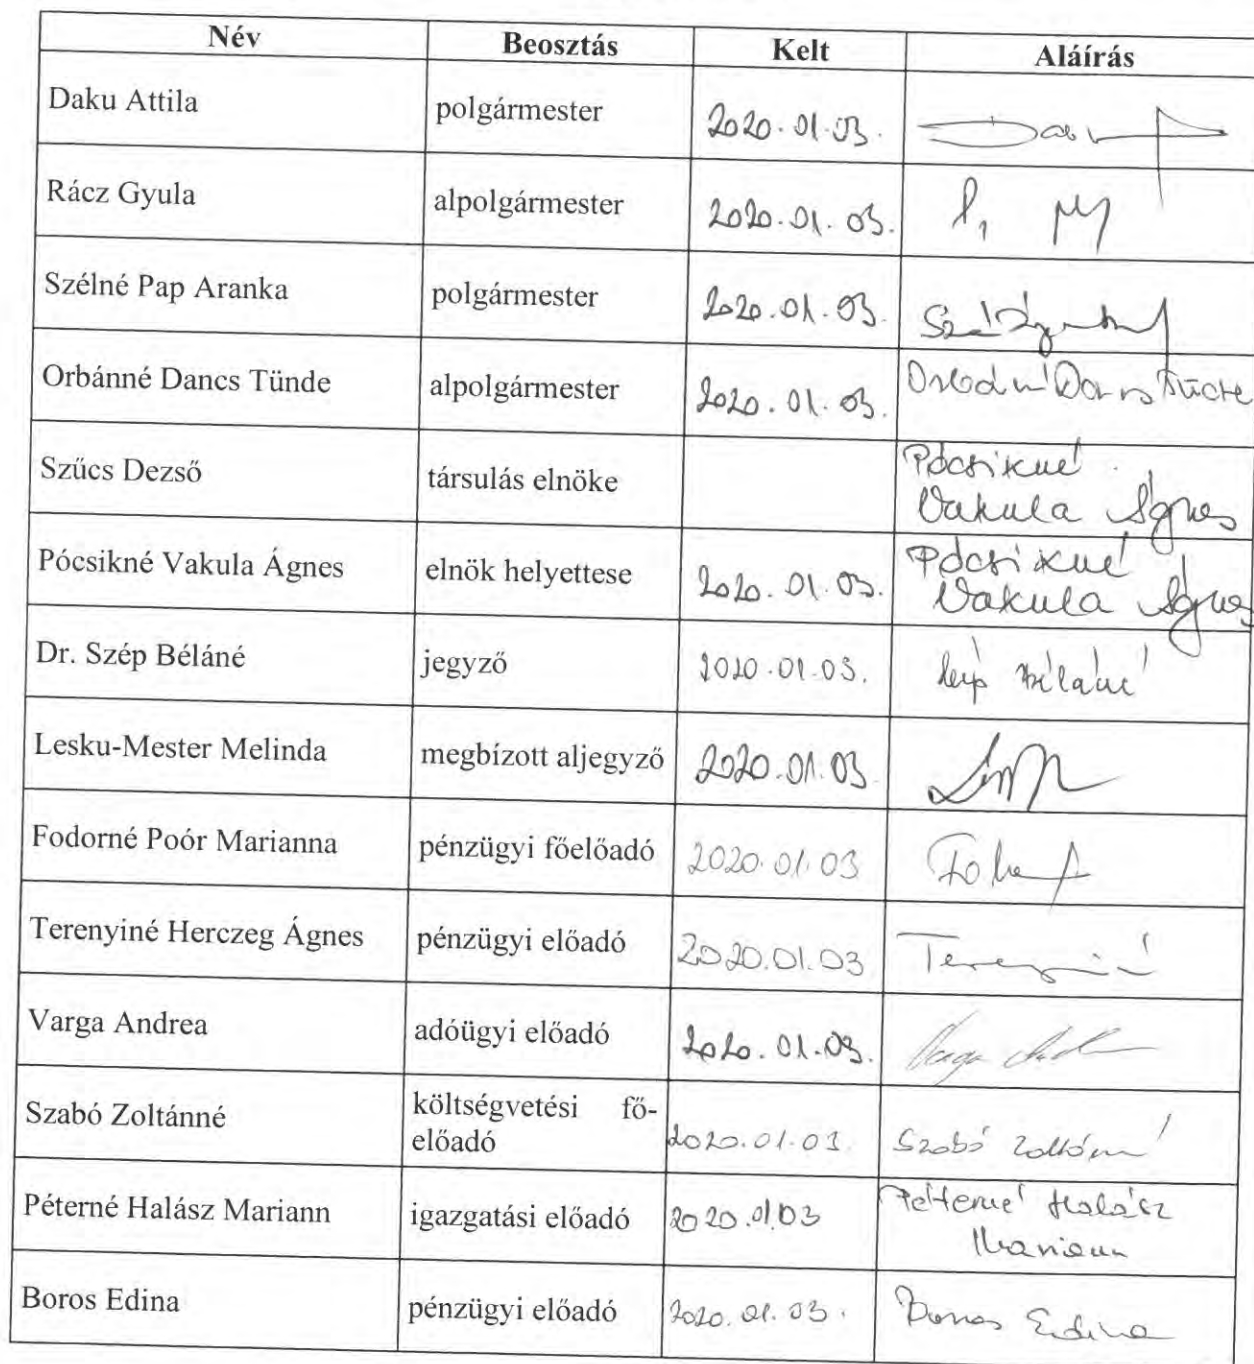 Név Beosztás Kelt Aláírás
Daku Attila polgármester 2020.01.03.
Rácz Gyula alpolgármester 2020.01.03.
Szélné Pap Aranka polgármester 2020.01.03.
Orbánné Dancs Tünde alpolgármester 2020.01.03. Orbánné Dancs Tünde
Szűcs Dezső társulás elnöke Pócsikné
Vakula Ágnes
Pócsikné Vakula Ágnes elnök helyettese 2020.01.03. Pócsikné
Vakula Ágnes
Dr. Szép Béláné jegyző 2020.01.03. Szép Béláné
Lesku-Mester Melinda megbízott aljegyző 2020.01.03
Fodorné Poór Marianna pénzügyi főelőadó 2020.01.03
Terenyiné Herczeg Ágnes pénzügyi előadó 2020.01.03 Terenyiné
Varga Andrea adóügyi előadó 2020.01.03. Varga
Szabó Zoltánné költségvetési fő-
előadó 2020.01.03. Szabó Zoltánné
Péterné Halász Mariann igazgatási előadó 2020.01.03 Péterné Halász
Mariann
Boros Edina pénzügyi előadó 2020.01.03. Boros Edina